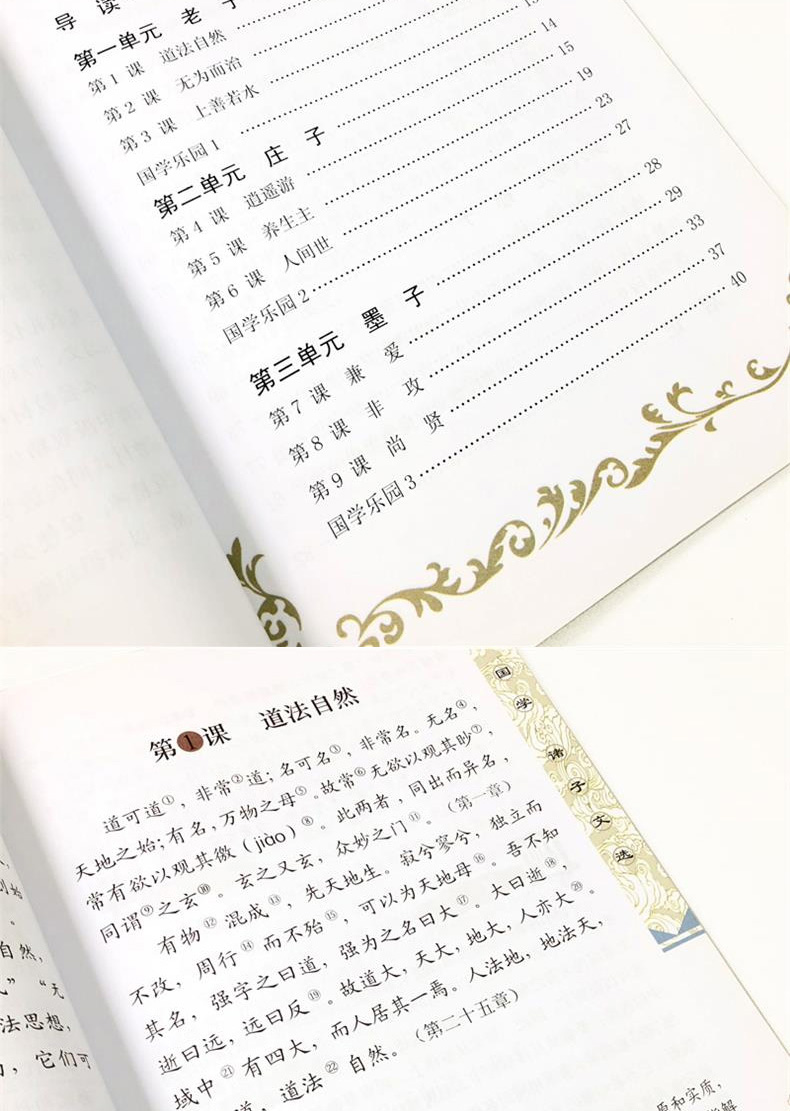 导 读
第一单元 老 子
第1课 道法自然
第2课 无为而治
第3课 上善若水
国学乐园1
第二单元 庄 子 14
第4课 逍遥游 15
第5课 养生主 19
第6课 人间世 23
国学乐园2 27
第三单元 墨 子 28
第7课 兼 爱 29
第8课 非 攻 33
第9课 尚 贤 37
国学乐园3 40
国学诸子文选
第1课 道法自然
道可道①，非常②道；名可名③，非常名。无名④，
天地之始；有名，万物之母⑤。故常⑥无欲以观其眇⑦，
常有欲以观其徼（jiào）⑧。此两者，同出而异名，
同谓⑨之玄⑩。玄之又玄，众妙之门⑪。（第一章）
有物⑫混成⑬，先天地生。寂兮寥兮，独立而
不改，周行⑭而不殆⑮，可以为天地母⑯。吾不知
其名，强字之曰道，强为之名曰大⑰。大曰逝⑱，
逝曰远，远曰反⑲。故道大，天大，地大，人亦大⑳。
域中㉑有四大，而人居其一焉。人法地，地法天，
道，道法㉒自然。（第二十五章）
自然，
”“无
法思想，
，它们可
原和实质，